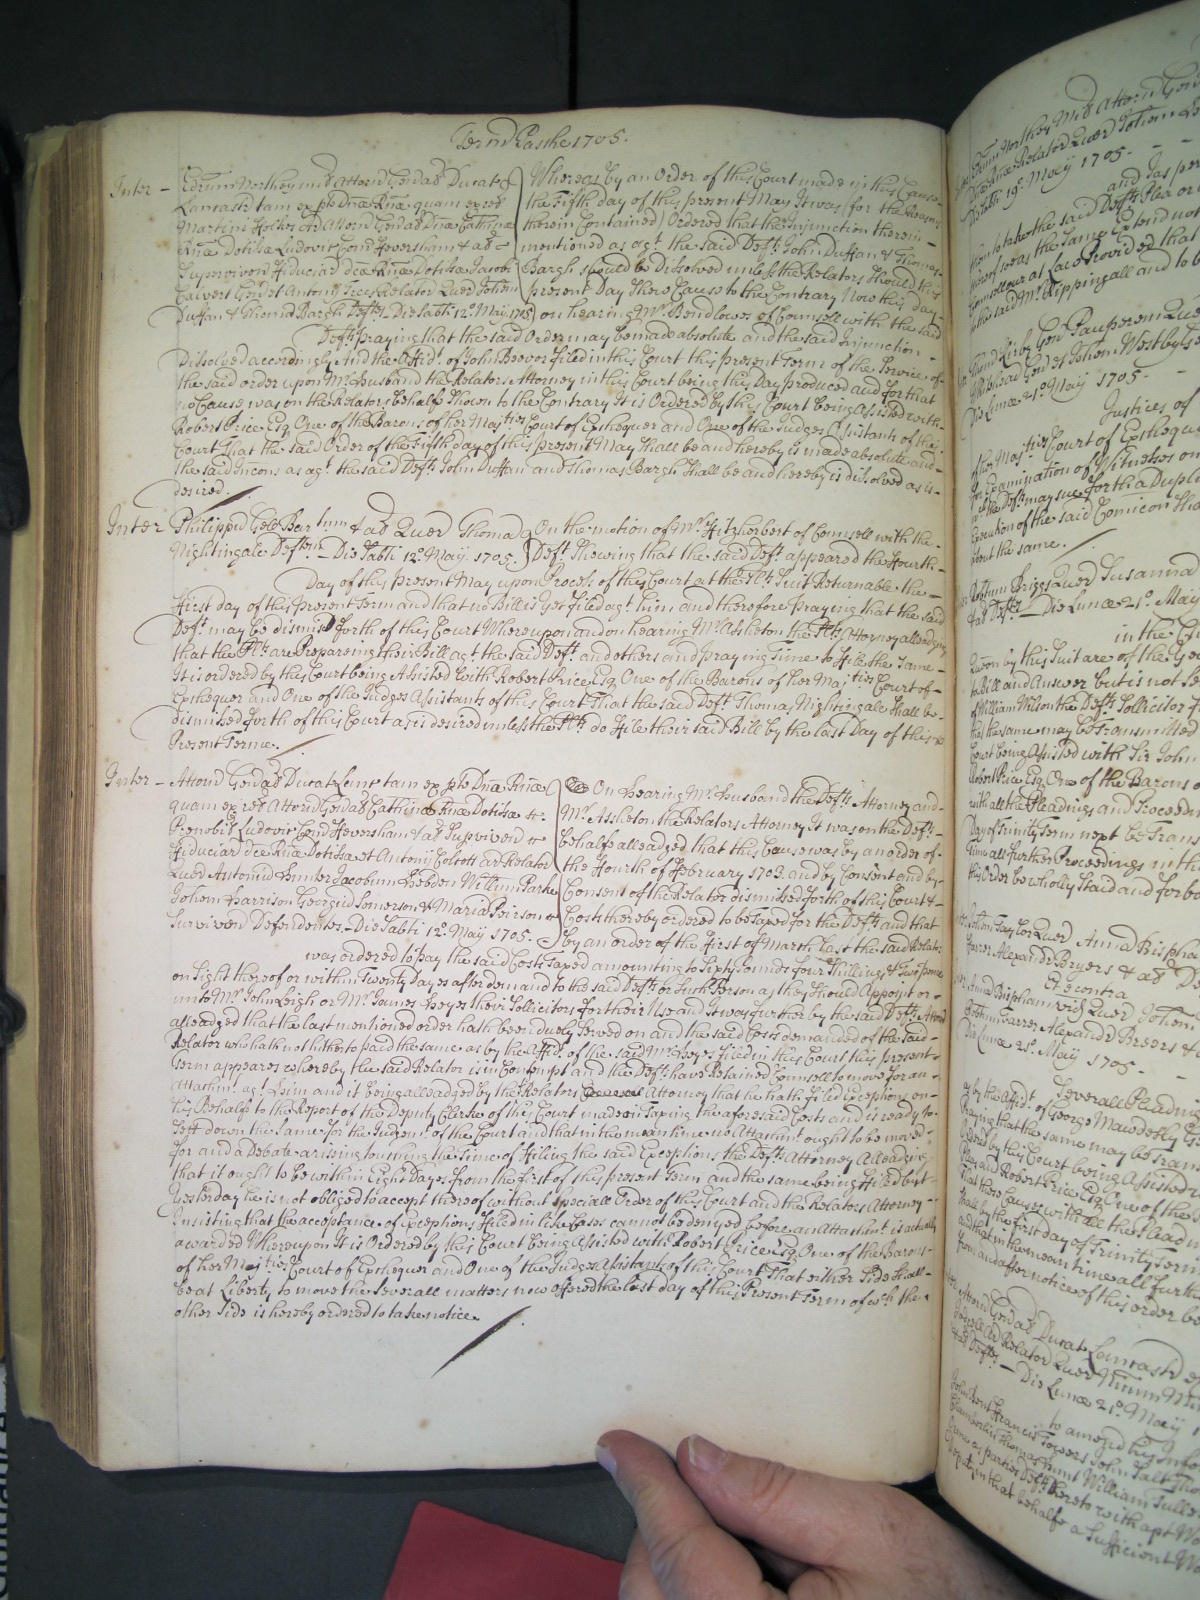 Termo Paschæ 1705.
Inter – Edrum Northey mil Attorn Genlał Ducatꝰ
Lancastr tam ex pte Dnæ Rnæ quam ex rel
Martini ffolkes ar Attorn Genlał Dnæ Cathinæ
Rnæ Dotibæ Ludovic Com ffeversham & ał
Supviven ffiduciar dcæ Rnæ Dotibæ Jacobi
Calvert Gen et Antony Relator Quer Johem
Duffan & Thomã Bargh Defles Die Sabti 12º May 1705
Whereas by an Order of this Court made in this Cause
the Fifth day of this present May It was (for the Reasons
therein Contained) Ordered that the Injunction therein
mentioned as agt. the said Defts. John Duffan & Thomas
Bargh should be Dissolved unless the Relators should this
present Day Shew Cause to the Contrary Now this Day
on hearing Mr. Bendlowes of Counsell with the said
Defts. praying that the said Order may be made absolute and the said Injunction
Dissolved accordingly And the Affidt. of John Beevor filed in this Court this present Term of the Service of
the said order upon Mr. Husband the Relators Attorney in this Court being this Day produced and for that
no Cause was on the Relators behalfe Shown to the Contrary It is Ordered by this Court being Assisted with
Robert Price Esq. One of the Barons of her Majties Court of Exchequer and One of the Judges Assistants of this
Court That the said Order of the Fifth day of this present May shall be and hereby is made absolute and
the said Incon as agt. the said Defts. John Duffan and Thomas Bargh shall be and hereby is dissolved as is
desired.
Inter Philippũ Gell Bartum & ał Quer Thomã
Nightingale Deftem – Die Sabti 12º May 1705.
On the motion of Mr. Fitzherbert of Counsell with the
Deft. Shewing that the said Deft. appeared the Fourth
Day of this present May upon Process of this Court at the Plts. Suit Returnable the
First day of this present Term and that no Bill is yet filed agt. him and therefore Praying that the said
Deft. may be dismist forth of this Court Whereupon and on hearing Mr. Assheton the Plts. Attorney alleadging
that the Plts. are Prepareing their Bill agt. the said Deft. and others and praying Time to file the Same
It is ordered by this Court being Assisted with Robert Price Esq. One of the Barons of her Majties Court of
Exchequer and One of the Judges Assistants of this Court That the said Deft. Thomas Nightingale shall be
dismissed forth of this Court as is desired unless the Plts. do file their said Bill by the last Day of this
Present Terme.
Inter – Attorñ Genlał Ducat Lanc tam ex pte Dnæ Rnæ
quam ex rel Attorñ Genlał Cathinæ Rnæ Dotibæ &
Prenobil Ludovic Com ffeversham & ał Supviven
ffiduciar dcæ Rnæ Dotibæ et Antonij Colcott ar Relator
Quer Antoniũ Hunter Jacobum Hebden Willum Parke
Johem Harrison Georgiũ Somerson & Maria Peirson
Surviven Defendentes. – Die Sabti 12º May 1705.
On Hearing Mr. Husband the Defts. Attorney and
Mr. Assheton the Relators Attorney It was on the Defts.
behalfe alleadged that this Cause was by an order of
the Fourth of February 1703 and by Consent and by
Consent of the Relator dismissed forth of this Court &
Costs thereby ordered to be Taxed for the Defts. and that
by an order of the First of March last the said Relator
was ordered to pay the said Costs Taxed amounting to Sixty Pounds four Shillings & Two pence
on Sight thereof or within Twenty Days after demand to the said Defts. or Such Person as they Should Appoint or
unto Mr. John Leigh or Mr. James Heyes their Sollicitors for their Use and It was further by the said Defts. Attorney
alleadged that the last mentioned order hath been duely Served on and the said Costs demanded of the said
Relator who hath not hitherto paid the same as by the Affidt. of the said Mr. Heyes filed in this Court this present
Term appeares whereby the said Relator is in Contempt and the Defts. have Retained Counsell to move for an
Attachmt. agt. him and it being alleadged by the Relators Attorney that he hath filed Exceptions on
his Behalfe to the Report of the Deputy Clerke of this Court made in Taxing the aforesaid Costs and is ready to
Sett down the Same for the Judgmt. of the Court and that in the mean time no Attachmt. ought to be moved
for and a Debate arissing touching the Time of filing the said Exceptions the Defts. Attorney Alleadging
that it ought to be within Eight Days from the first of this present Term and the same being filed but
Yesterday he is not obliged to accept thereof without speciall Order of this Court and the Relators Attorney
Insisting that the acceptance of exceptions filed in like Cases cannot be denyed before an Attachmt. is actually
awarded Whereupon It is Ordered by this Court being Assisted with Robert Price Esq. One of the Barons
of her Majties Court of Exchequer and One of the Judges Assistants of this Court That either Side shall
be at Liberty to move the Severall matters now offered the last day of this Present Term of wch. the
other Side is hereby ordered to take notice.
Die Sabti 19º May 1705.
and has per
the said Defts. Plea or
the said Mr. Rippingall and to b
Die Lunæ 21º May 1705.
Justices of
her Majties Court of Exchequer
for Examination of Witnesses on
the Defts. may sue forth a Duplic
Execution of the said Comicon tha
about the same.
Briggs Quer Susanna
& ał Deftes – Die Lunæ 21º May
in the Ex
to Bill and Answer but is not Se
of William Wilson the Defts. Sollicitor f
that the same may be Transmitted
Court being Assisted with Sir John
Robert Price Esq. One of the Barons o
with all the Pleadings and Proceedin
Day of Trinity Term next be Trans
time all further Proceedings in th
this Order be wholly Staid and forbo
Johem Taylor Quer Anna Brispha
Farrer Alexandr Bryers & ał De
Et e contra
Anna Brispham vid Quer Johem
Farrer Alexandr Breers &
Die Lunæ 21º May 1705.
Severall Pleadin
as by the Affidt. of George Mawdesly G
Praying that the same may be Tran
Ordered by this Court being Assisted w
and Robert Price Esq. One of the
That these Causes with all the Pleadin
shall by the first day of Trinity Term
and that in the mean time all furth
from and after notice of this order be
Attorñ Genlał Ducat Lancastr e
ar Relator Quer
Deftes – Die Lunæ 21º May 1
to amend his Infor
John Bent Francis Towers John Salt Tho
Chamberlin Thomas Hunt William Tulle
as parties Defts. thereto with apt Wo
Deputy in that behalfe a Sufficient W